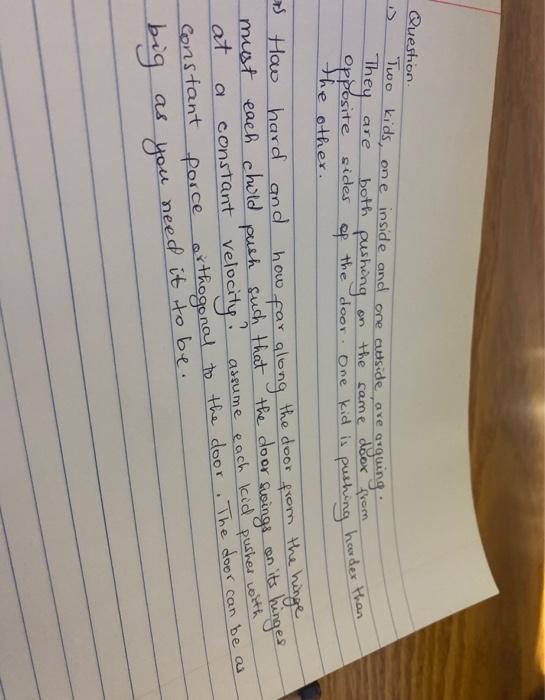 Question.
1) Two kids, one inside and one outside, are arguing.
They are both pushing on the same door from
opposite sides of the door. One kid is pushing harder than
the other.
a) How hard and how far along the door from the hinge
must each child push such that the door swings on its hinges
at a constant velocity? assume each kid pushes with
constant force orthogonal to the door. The door can be as
big as you need it to be.